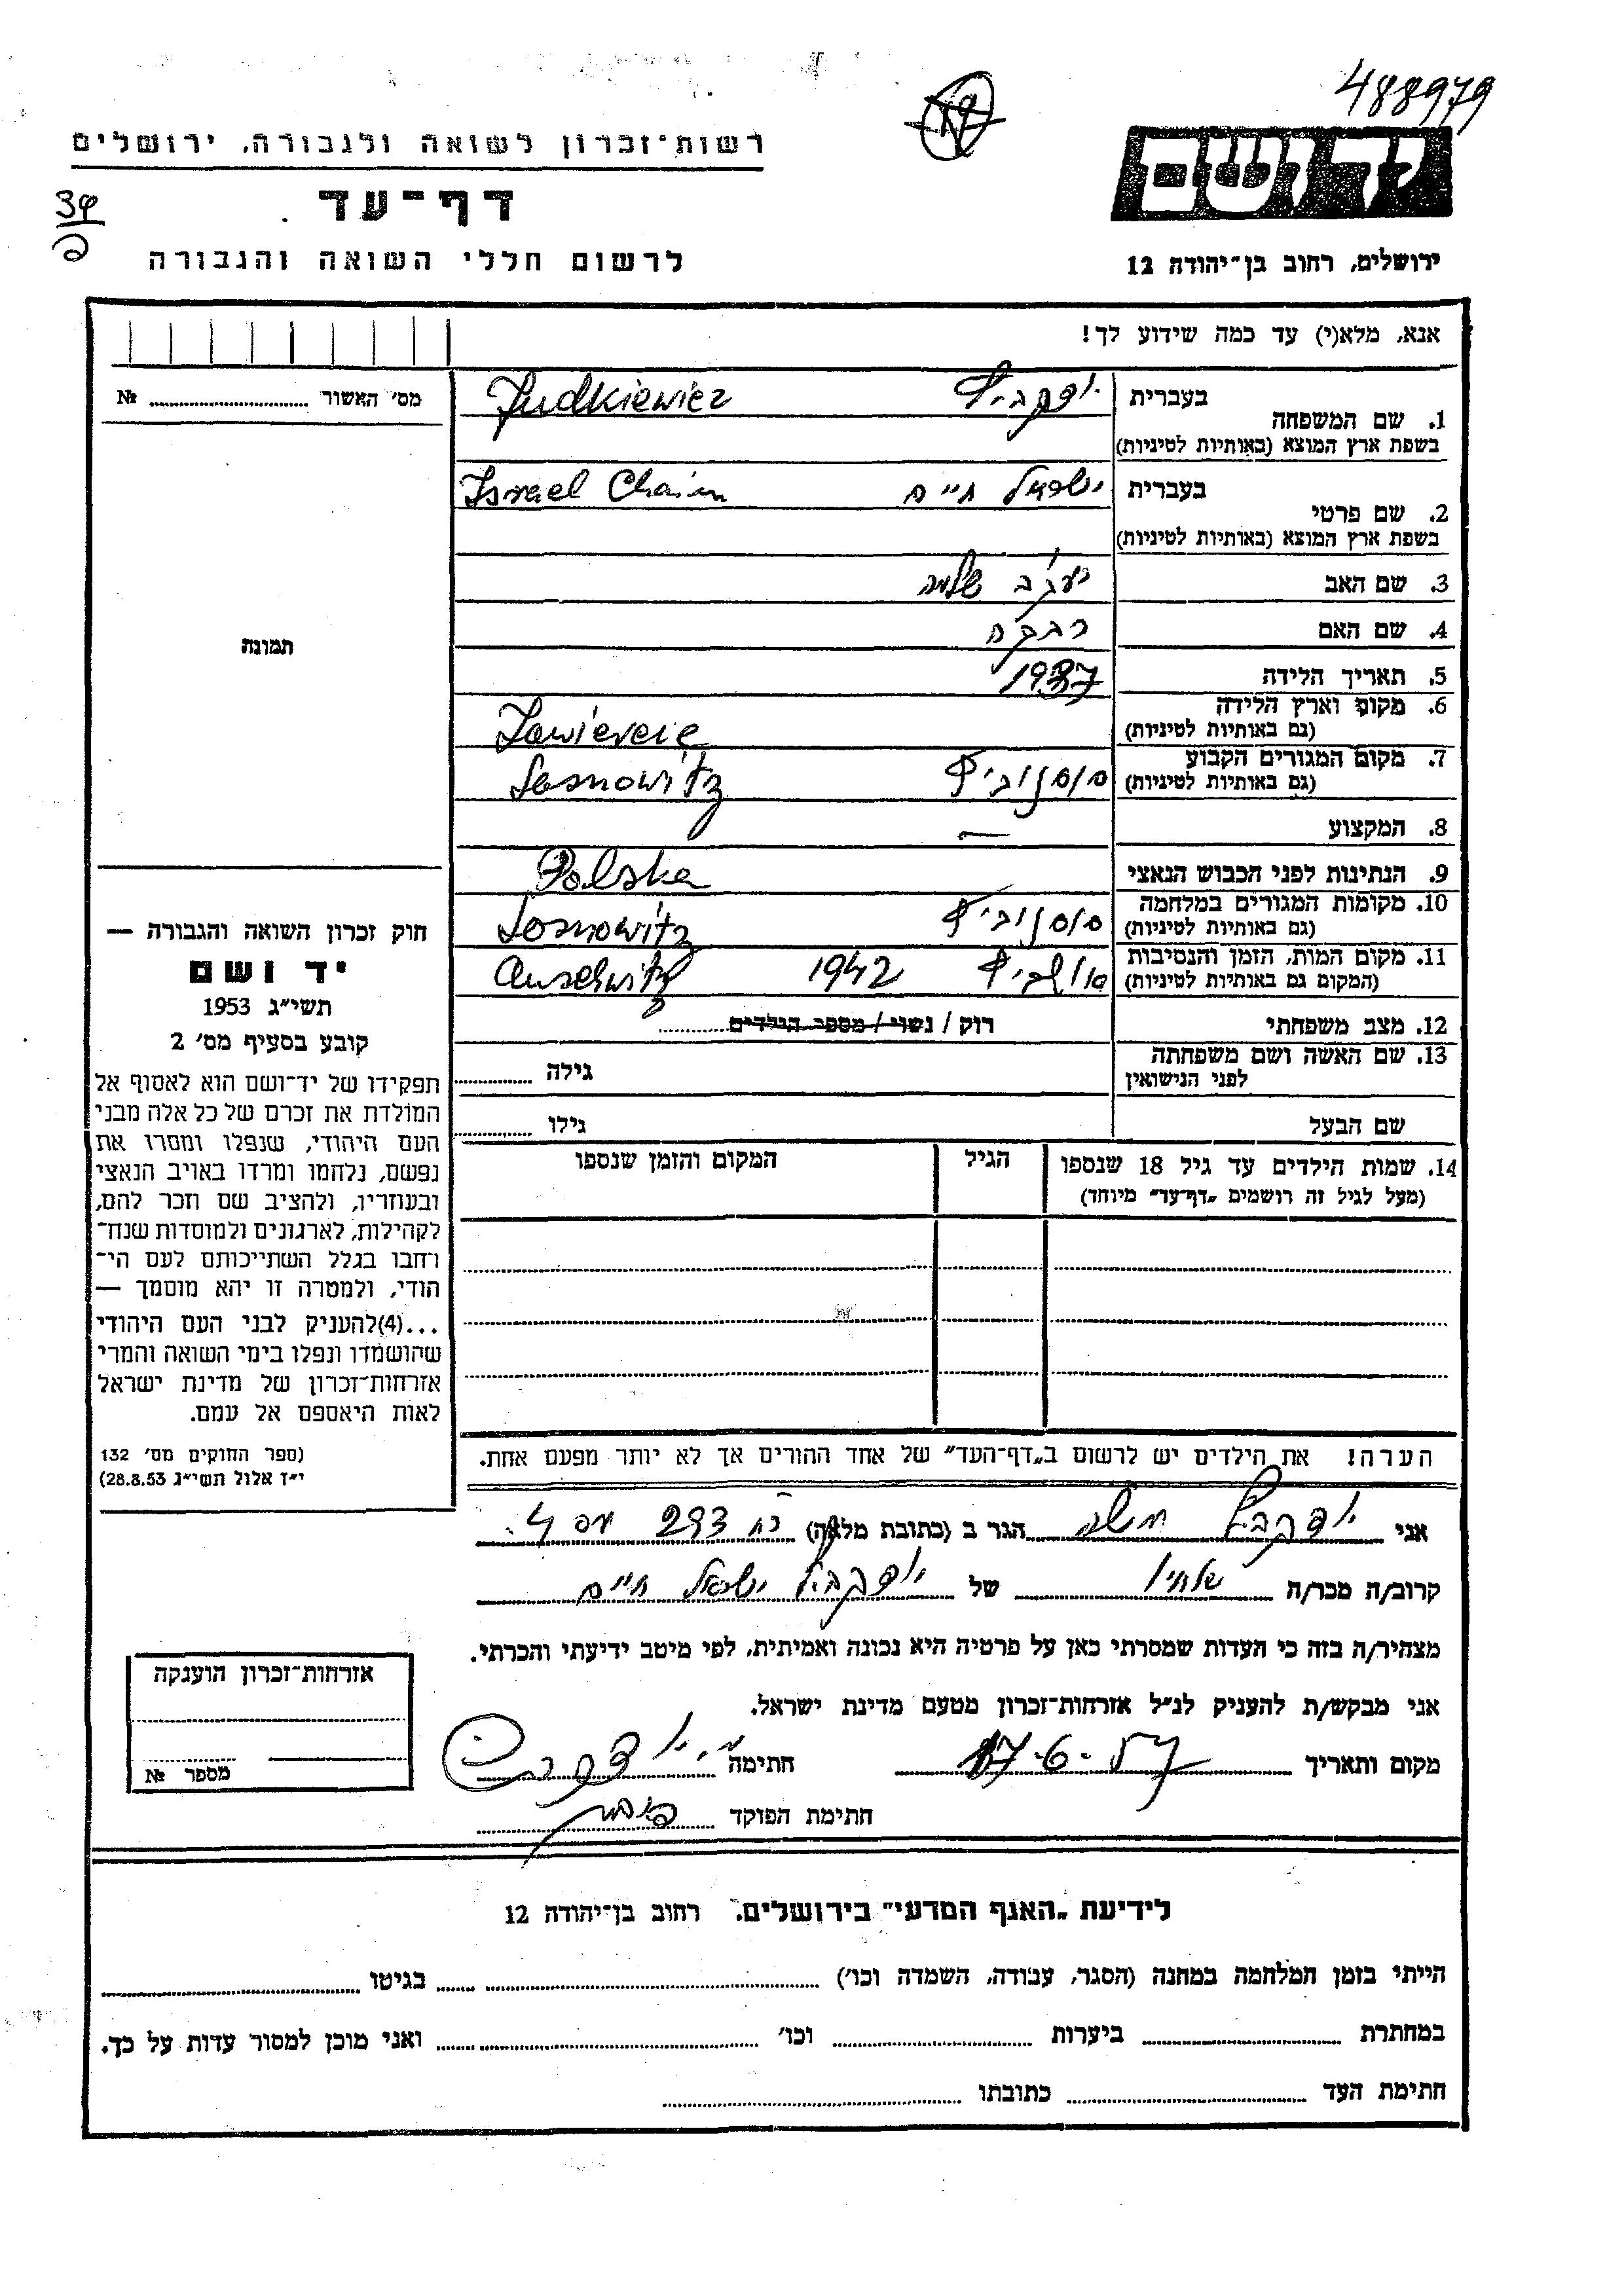 488979
רשות־זכרון לשואה ולגבורה, ירושלים
יד ושם
דף־עד
לרשום חללי השואה והגבורה
ירושלים, רחוב בן־יהודה 12
אנא, מלא(י) עד כמה שידוע לך!
מס׳ האשור № 
בעברית יודקביץ Judkiewicz
1. שם המשפחה
בשפת ארץ המוצא (באותיות לטיניות)
בעברית ישראל חיים Israel Chaim
2. שם פרטי
בשפת ארץ המוצא (באותיות לטיניות)
3. שם האב יעקב שלמה
4. שם האם רבקה
תמונה
5. תאריך הלידה 1937
6. מקום וארץ הלידה Zawiercie
(גם באותיות לטיניות)
7. מקום המגורים הקבוע סוסנוביץ Sosnowitz
(גם באותיות לטיניות)
8. המקצוע —
9. הנתינות לפני הכבוש הנאצי Polska
10. מקומות המגורים במלחמה סוסנוביץ Sosnowitz
(גם באותיות לטיניות)
11. מקום המות, הזמן והנסיבות 1942 Auschwitz
(המקום גם באותיות לטיניות)
12. מצב משפחתי רוק / נשוי / מספר הילדים
13. שם האשה ושם משפחתה גילה
לפני הנישואין
שם הבעל גילו
14. שמות הילדים עד גיל 18 שנספו הגיל המקום והזמן שנספו
(מעל לגיל זה רושמים „דף־עד” מיוחד)
חוק זכרון השואה והגבורה —
יד ושם
תשי״ג 1953
קובע בסעיף מס׳ 2
תפקידו של יד־ושם הוא לאסוף אל
המולדת את זכרם של כל אלה מבני
העם היהודי, שנפלו ומסרו את
נפשם, נלחמו ומרדו באויב הנאצי
ובעוזריו, ולהציב שם וזכר להם,
לקהילות, לארגונים ולמוסדות שנח־
רחבו בגלל השתייכותם לעם הי־
הודי, ולמטרה זו יהא מוסמך —
...(4)להעניק לבני העם היהודי
שהושמדו ונפלו בימי השואה והמרי
אזרחות־זכרון של מדינת ישראל
לאות היאספם אל עמם.
(ספר החוקים מס׳ 132
י״ז אלול תשי״ג 28.8.53)
הערה! את הילדים יש לרשום ב„דף־העד” של אחד ההורים אך לא יותר מפעם אחת.
אני יודקביץ משה הגר ב (כתובת מלאה) 293
קרוב/ה מכר/ה של יודקביץ ישראל חיים
מצהיר/ה בזה כי העדות שמסרתי כאן על פרטיה היא נכונה ואמיתית, לפי מיטב ידיעתי והכרתי.
אני מבקש/ת להעניק לנ״ל אזרחות־זכרון מטעם מדינת ישראל.
מקום ותאריך 17-6-57 חתימה
חתימת הפוקד
אזרחות־זכרון הוענקה
מספר №
לידיעת „האגף המדעי” בירושלים. רחוב בן־יהודה 12
הייתי בזמן המלחמה במחנה (הסגר, עבודה, השמדה וכו׳) בגיטו
במחתרת ביערות וכו׳ ואני מוכן למסור עדות על כך.
חתימת העד כתובתו